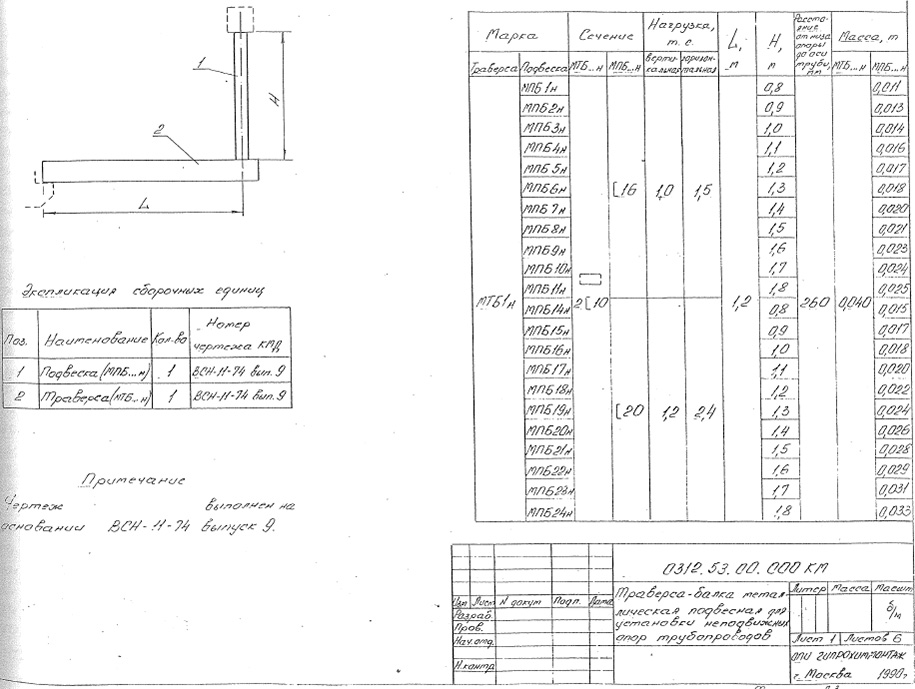 1
H
2
L
Экспликация сборочных единиц
Поз. Наименование Кол-во Номер чертежа КМД
1 Подвеска (МПБ...н) 1 ВСН-11-74 вып. 9
2 Траверса (МТБ...н) 1 ВСН-11-74 вып. 9
Примечание
Чертеж выполнен на
основании ВСН-11-74 выпуск 9.
Марка Сечение Нагрузка, т.с. L, м H, м Расстояние от низа опоры до оси трубы, мм Масса, т
Траверса Подвеска МТБ...н МПБ...н вертикальная горизонтальная МТБ...н МПБ...н
МПБ1н 0,8 0,011
МПБ2н 0,9 0,013
МПБ3н 1,0 0,014
МПБ4н 1,1 0,016
МПБ5н 1,2 0,017
МПБ6н [16 1,0 1,5 1,3 0,018
МПБ7н 1,4 0,020
МПБ8н 1,5 0,021
МПБ9н 1,6 0,023
МПБ10н 1,7 0,024
МПБ11н 1,8 0,025
МТБ1н МПБ14н 2[10 1,2 0,8 260 0,040 0,015
МПБ15н 0,9 0,017
МПБ16н 1,0 0,018
МПБ17н 1,1 0,020
МПБ18н 1,2 0,022
МПБ19н [20 1,2 2,4 1,3 0,024
МПБ20н 1,4 0,026
МПБ21н 1,5 0,028
МПБ22н 1,6 0,029
МПБ23н 1,7 0,031
МПБ24н 1,8 0,033
0312.53.00.000 КМ
Изм Лист N докум Подп. Дата
Разраб.
Пров.
Нач.отд.
Н.контр.
Траверса-балка метал-
лическая подвесная для
установки неподвижных
опор трубопроводов
Литер Масса Масшт
б/м
Лист 1 Листов 6
ОПИ Гипрохиммонтаж
г. Москва 1990г